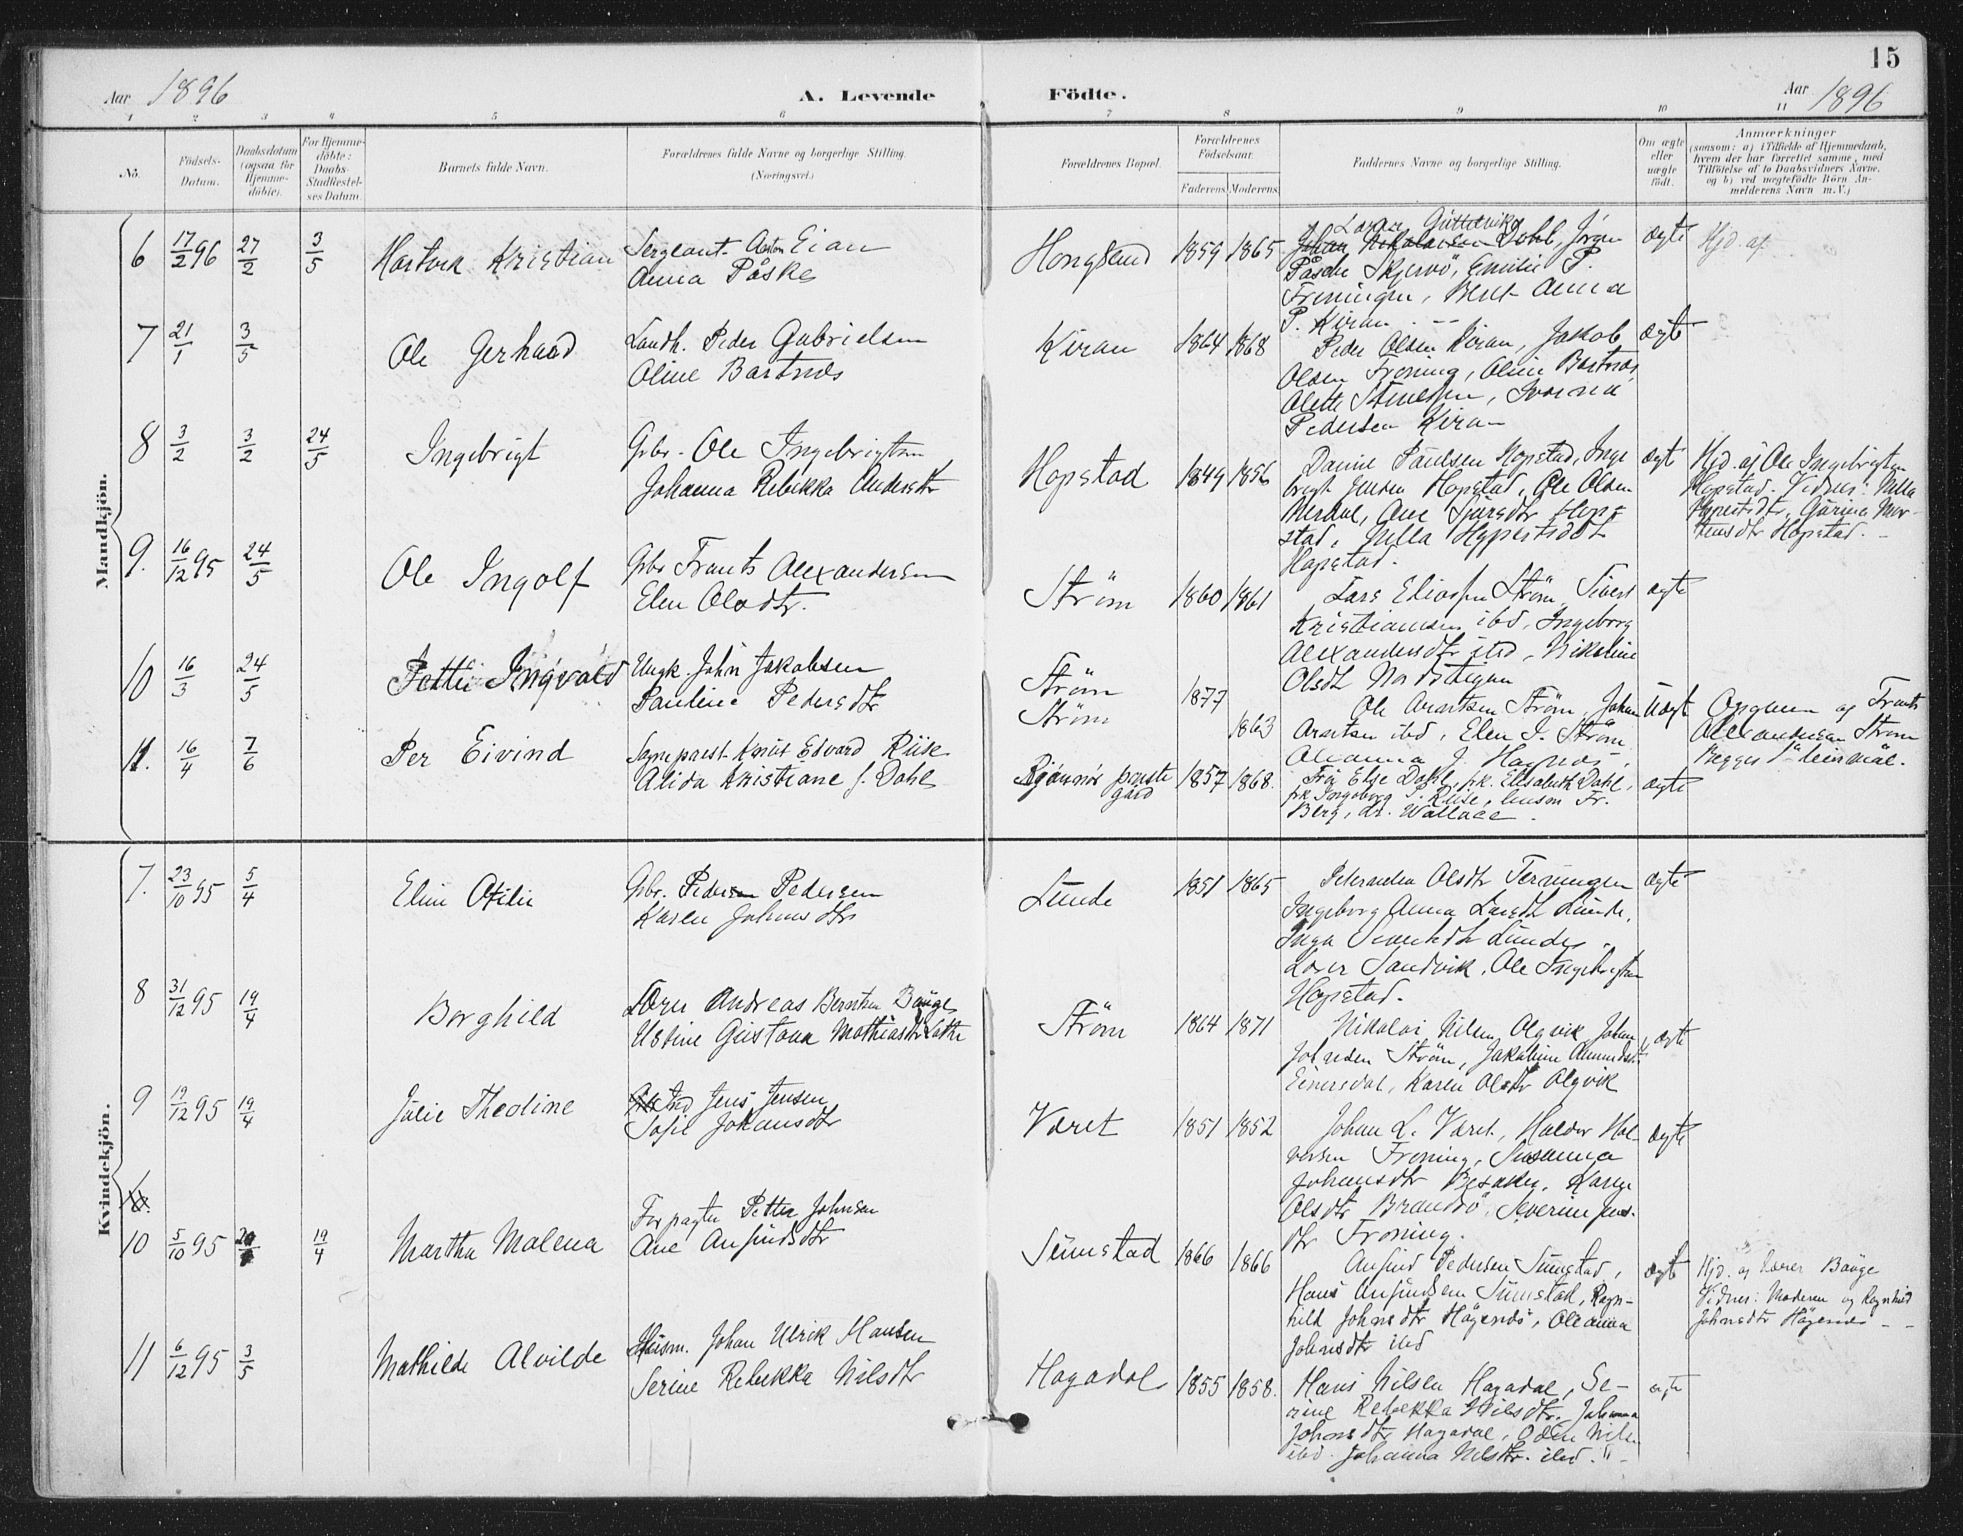 15
Aar 1896
A. Levende Födte.
Aar 1896
1 2 3 4 5 6 7 8 9 10 11
No.
Födsels-Datum.
Daabsdatum (ogsaa for Hjemme-döbte).
For Hjemme-döbte: Daabs-Stadfæstel-ses Datum.
Barnets fulde Navn.
Forældrenes fulde Navne og borgerlige Stilling.
(Næringsvei.)
Forældrenes Bopæl.
Forældrenes Födselsaar.
Faderens Moderens
Faddernes Navne og borgerlige Stilling.
Om ægte eller uægte födt.
Anmærkninger
(saasom: a) i Tilfælde af Hjemmedaab, hvem der har forrettet samme, med Tilföielse af to Daabsvidners Navne, og b) ved uægtefödte Börn An-melderens Navn m.V.)
Mandkjön.
6 17/2 96 27/2 3/5 Hartvik Kristian
Sergeant Anton Eian
Anna Påske
Hongsund 1859 1865
Jørgen
Påske Skjervö, Emilie P.
Froningen, Berit Anna
P. Kiran
ægte Hjd. af
7 21/1 3/5 Ole Gerhard
Landh. Peder Gabrielsen
Oline Bartnes
Kiran 1864 1868
Peder Olsen Kiran, Jakob
Olsen Froning, Oline Bartnes
Pedersen Kiran
ægt
8 3/2 3/2 24/5 Ingebrigt
Gbr. Ole Ingebrigtsen
Johanna Rebekka Andersdtr
Hopstad 1849 1856
Daniel Paulsen Hopstad, Inge
brigt Jensen Hopstad, Ole Olsen
Merdal, Ane Sjursdtr Hop-
stad,
Hopstad.
ægt
Hjd. af Ole Ingebrigtsen
Hopstad. Vidner:
Hopstad.
9. 16/12 95 24/5 Ole Ingolf
Gbr Frants Alexandersen
Elen Olsdtr.
Ström 1860 1861
Lars Eliassen Ström, Sivert
Kristiansen ibd, Ingeborg
Alexandersdtr ibd, Nikoline
Olsdtr Nordstigen
ægte
10 16/3 24/5 Petter Ingvald
Ungk. John Jakobsen
Pauline Pedersdtr
Ström
Ström
1877
1863
Ole Arntsen Ström, Johan
Arntsen ibd, Elen J. Ström
Uægt
Opgiven af Frants
Alexandersen Ström
Begges 1ste leiermål.
11. 16/4 7/6 Per Eivind
Sognepræst Knut Edvard Riise
Alida Kristiane f. Dahl
præste
gård
1857 1868.
Fru Else Dahl, frk. Elisabeth Dahl,
frk Ingeborg P. Riise,
Berg, dr. Wallace.
ægte
Kvindekjön.
7. 23/10 95 5/4 Eline Otilie
Gbr. Peder Pedersen
Karen Johnsdtr
Lunde 1851 1865
Olsdtr Terningen
Ingeborg Anna Larsdtr Lunde,
Inga Sivertsdtr Lunde,
Sandvik, Ole Ingebrigtsen
Hopstad.
ægte
8 31/12 95 19/4 Borghild
Andreas Berntsen Bauge
Ustine Gustava Mathiasdtr
Ström 1864 1871
Nikolai Nilsen Olqvik, Johan
Johnsen Ström, Jakobine
Einersdal, Karen Olsdtr Olqvik
ægte
9 19/12 95 19/4 Julie Theoline
Jens Jensen
Sofie Johansdtr
Været 1851 1852
Johan L. Været, Haldor Hal-
vorsen Froning, Susanna
Johansdtr Besaker, Karen
Olsdtr Brandsö, Severine Jens-
dtr Froning.
ægte
10 5/10 95 19/4 Martha Malena
Forpagter Petter Johnsen
Ane Anfindsdtr
Sumstad 1866 1866
Anfind Pedersen Sumstad,
Hans Anfindsen Sumstad, Ragn-
hild Johnsdtr Högenös, Oleanna
Johnsdtr ibd
ægt
Hjd. af Lærer Bauge
Vidner: Moderen og Ragnhild
Johnsdtr
11 6/12 95 3/5 Mathilde Alvilde
Husm. Johan Ulrik Hansen
Serine Rebekka Nilsdtr
Hagadal 1855 1858.
Hans Nilsen Hagadal, Se-
rine Rebekka Nilsdtr, Johanna
Johnsdtr Hagadal,
ibd. Johanna Nilsdtr. ibd.
ægte